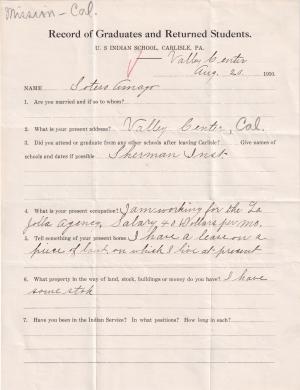 Mission - Cal.
Record of Graduates and Returned Students.
U. S INDIAN SCHOOL, CARLISLE, PA.
Valley Center
Aug. 20. 1910.
NAME Sotero Amago
1. Are you married and if so to whom?
2. What is your present address? Valley Center, Cal.
3. Did you attend or graduate from any other schools after leaving Carlisle? Give names of
schools and dates if possible Sherman Inst.
4. What is your present occupation? I am working for the La
Jolla Agency, Salary 40 Dollars per mo.
5. Tell something of your present home I have a lease on a
piece of land on which I live at present
6. What property in the way of land, stock, buildings or money do you have? I have
some stok
7. Have you been in the Indian Service? In what positions? How long in each?